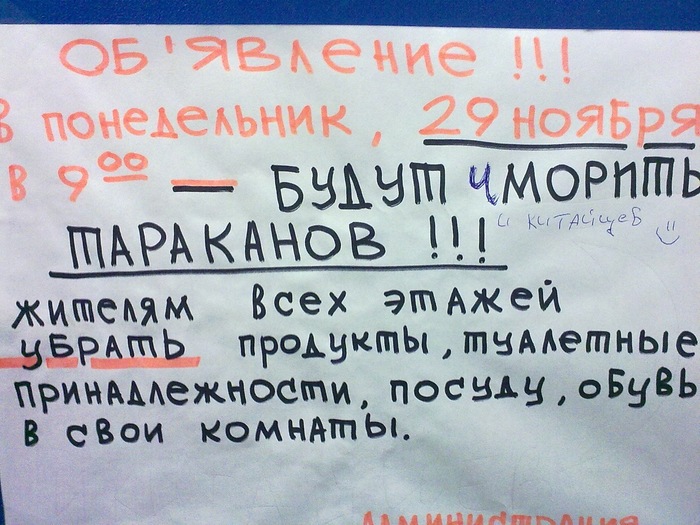 ОБ'ЯВЛЕНИЕ !!!
В ПОНЕДЕЛЬНИК, 29 НОЯБРЯ
В 9 00 — БУДУТ ЧМОРИТЬ
и китайцев
ТАРАКАНОВ !!!
ЖИТЕЛЯМ ВСЕХ ЭТАЖЕЙ
УБРАТЬ ПРОДУКТЫ, ТУАЛЕТНЫЕ
ПРИНАДЛЕЖНОСТИ, ПОСУДУ, ОБУВЬ
В СВОИ КОМНАТЫ.
АДМИНИСТРАЦИЯ